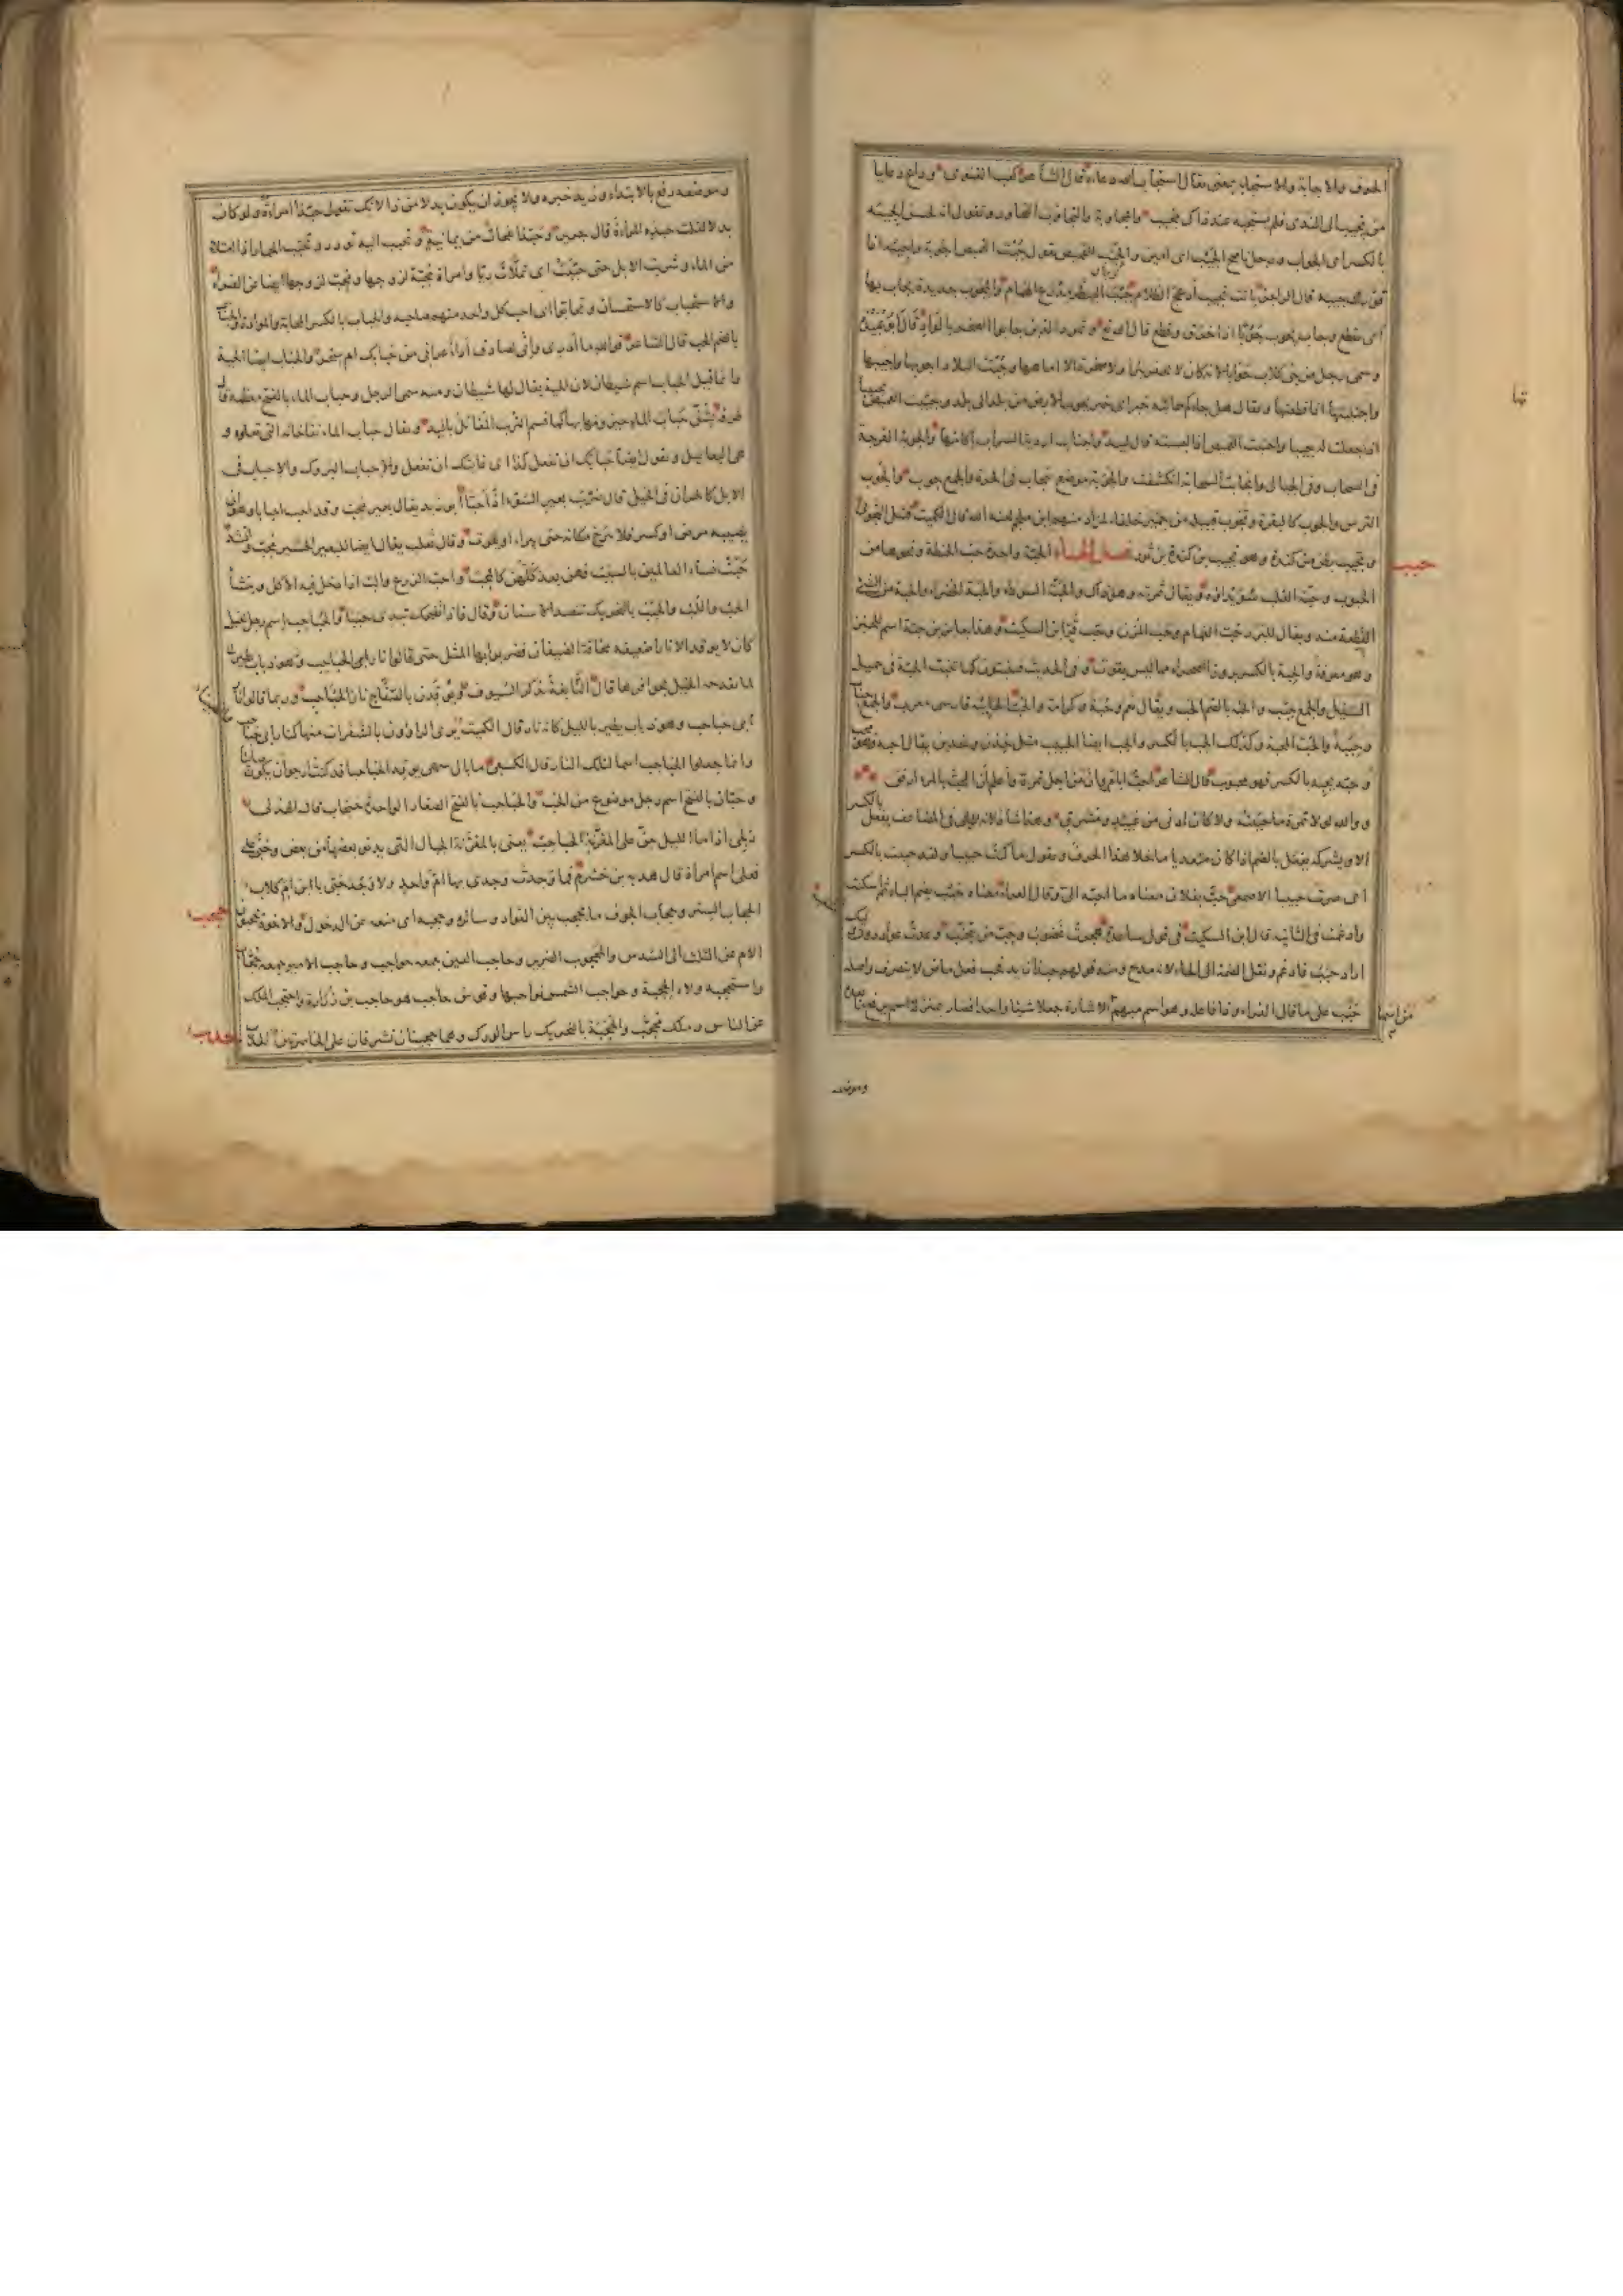 الجوف والاجابة والاستجابة بمعنى يقال استجاب الله دعاءه قال الشاعر كعب الغنوى وداع دعا يا
من يجيب الى الندى فلم يستجبه عند ذاك مجيب والمجاوبة والتجاوب التحاور وتقول انه لحسن الجيبة
بالكسر اى الجواب ورجل ناصح الجيب اى امين والجيب للقميص تقول جبت القميص اجوبه واجيبه اذا
قورت جيبه قال الراجز باتت تجيب ادعج الظلام جيب البيطر مدرع الهمام والمجوب حديدة يجاب بها
اى يقطع وجاب يجوب جوبا اذا خرق وقطع
وسمى رجل من بنى كلاب جوابا لانه كان لا يحفر بئرا ولا صخرة الا اماهها وجبت البلاد اجوبها واجيبها
واجتبتها اذا قطعتها ويقال هل جاءكم جائبة خبر اى خبر يجوب الارض من بلد الى بلد وجيبت القميص
اذا جعلت له جيبا واجتبت القميص اذا لبسته قال لبيد واجتاب اردية السراب اكامها والجوبة الفرجة
فى السحاب وفى الجبال وانجابت السحابة انكشفت والجوبة موضع ينجاب فى الحرة والجمع جوب والجوب
الترس والمجوب كالبقيرة وتجوب قبيلة من حمير حلفاء لمراد منهم ابن ملجم لعنه الله قال الكميت
وتجيب بطن من كندة وهو تجيب بن كندة بن ثور فصل الحاء الحبة واحدة حب الحنطة ونحوها من
الحبوب وحبة القلب سويداؤه ويقال ثمرته وهو ذاك والحبة السوداء والحبة الخضراء والحبة من الشئ
القطعة منه ويقال للبرد حب الغمام وحب المزن وحب قر ابن السكيت وهذا جابر بن حبة اسم للخبز
وهو معرفة والحبة بالكسر بزور الصحراء مما ليس بقوت وفى الحديث فينبتون كما تنبت الحبة فى حميل
السيل والجمع حبب والحبة بالضم الحب ويقال نعم وحبة وكرامة والحب الخابية فارسى معرب والجمع حباب
وحببة والحب المحبة وكذلك الحب بالكسر والحب ايضا الحبيب مثل خدن وخدين يقال احبه فهو محب
وحبه يحبه بالكسر فهو محبوب قال الشاعر احب ابا مروان من اجل تمره واعلم ان الحب بالمرء ارفق
ووالله لولا تمره ما حببته ولا كان ادنى من عبيد ومشرق وهذا شاذ لانه لا ياتى فى المضاعف يفعل بالكسر
الا ويشركه يفعل بالضم اذا كان متعديا ما خلا هذا الحرف وتقول ما كنت حبيبا ولقد حببت بالكسر
اى صرت حبيبا الاصمعى حب بفلان معناه ما احبه الى وقال الفراء معناه حبب بضم الباء ثم اسكنت
وادغمت فى الثانية قال ابن السكيت فى قول ساعدة هجرت غضوب وحب من يتجنب وعدت عواد دون وليك
اراد حبب فادغم ونقل الضمة الى الحاء لانه مدح ومنه قولهم حبذا زيد فحب فعل ماض لا يتصرف واصله
حبب على ما قال الفراء وذا فاعله وهو اسم مبهم من اسماء الاشارة جعلا شيئا واحدا فصار بمنزلة اسم يرفع ما بعده
حبب
وموضعه
وموضعه رفع بالابتداء وزيد خبره ولا يجوز ان يكون بدلا من ذا لانك تقول حبذا امراة ولو كان
بدلا لقلت حبذه المراة قال جرير وحبذا نفحات من يمانية وتحبب اليه تودد وتحبب الحمار اذا امتلا
من الماء وشربت الابل حتى حببت اى تملات ريا وامراة محبة لزوجها ومحب لزوجها ايضا عن الفراء
والاستحباب كالاستحسان وتحابوا اى احب كل واحد منهم صاحبه والحباب بالكسر المحابة والموادة والحباب
بالضم الحب قال الشاعر فوالله ما ادرى وانى لصادق اداء عرانى من حبابك ام سحر والحباب ايضا الحية
وانما قيل الحباب اسم شيطان لان الحية يقال لها شيطان ومنه سمى الرجل وحباب الماء بالفتح معظمه قال
طرفة يشق حباب الماء حيزومها بها كما قسم الترب المفائل باليد ويقال حباب الماء نفاخاته التى تعلوه و
هى اليعاليل وتقول ايضا حبابك ان تفعل كذا اى غايتك ان تفعل والاحباب البروك والاحباب فى
الابل كالحران فى الخيل قال ضرب بعير السوء اذ احبا ابو زيد يقال بعير محب وقد احب احبابا وهو ان
يصيبه مرض او كسر فلا يبرح مكانه حتى يبرا او يموت وقال ثعلب يقال ايضا للبعير الحسير محب وانشد
حبت نساء العالمين بالسبب فهن بعد كلهن كالمحب واحب الزرع والب اذا دخل فيه الاكل وتنشا
الحب واللب والحبب بالتحريك تنضد الاسنان وقال واذا تضحك تبدى حببا والحباحب اسم رجل بخيل
كان لا يوقد الا نارا ضعيفة مخافة الضيفان فضربوا بها المثل حتى قالوا نار الحباحب
لما تقدحه الخيل بحوافرها قال النابغة يذكر السيوف ويوقدن بالصفاح نار الحباحب وربما قالوا نار
ابى حباحب وهو ذباب يطير بالليل كانه نار قال الكميت يرى الراؤون بالشفرات منها كنار ابى حباحب
وربما جعلوا الحباحب اسما لتلك النار قال الكسعى ما بال سهمى يوقد الحباحبا قد كنت ارجو ان يكون صائبا
وحبان بالفتح اسم رجل موضوع من الحب والحباحب بالفتح الصغار الواحد حبحاب قال الهذلى
دلجى اذا ما الليل جن على المقرنة الحباحب يعنى بالمقرنة الجبال التى يدنو بعضها من بعض وحبى على
فعلى اسم امراة قال هدبة بن خشرم فما وجدت وجدى بها ام واحد ولا وجد حبى بابن ام كلاب
الحجاب الستر وحجاب الجوف ما يحجب بين الفؤاد وسائره وحجبه اى منعه عن الدخول والاخوة يحجبون
الام عن الثلث الى السدس والمحجوب الضرير وحاجب العين جمعه حواجب وحاجب الامير جمعه حجاب
واستحجبه ولاه الحجبة وحواجب الشمس نواحيها وقوس حاجب هو حاجب بن زرارة واحتجب الملك
عن الناس وملك محجب والحجبة بالتحريك راس الورك وهما حجبتان تشرفان على الخاصرتين
حجب
حدب